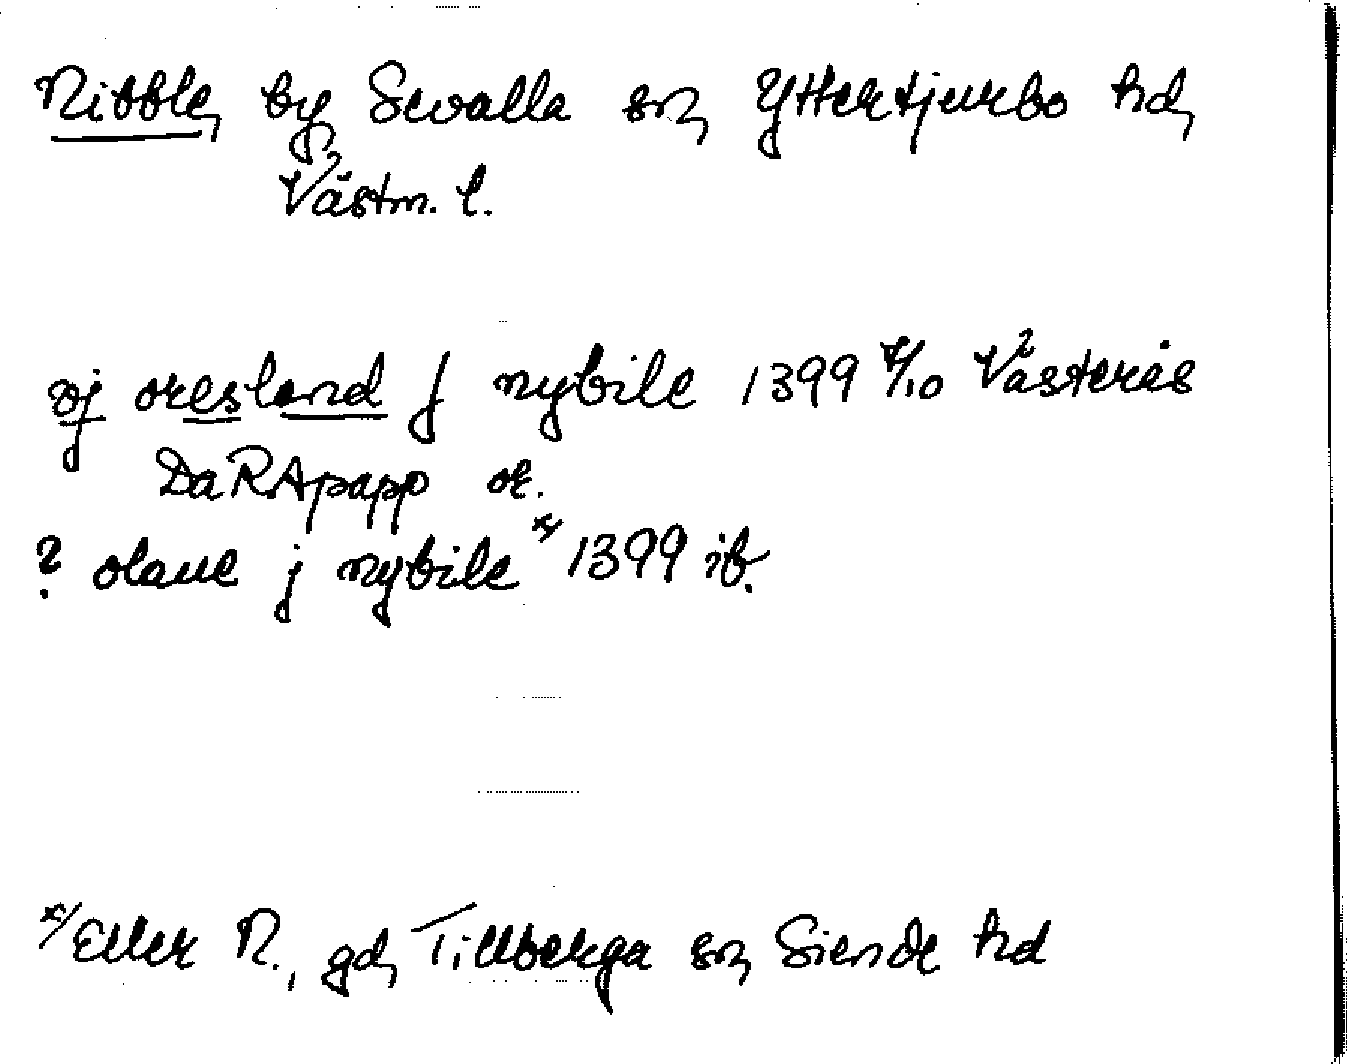 Nibble, by, Sevalla sn, Yttertjurbo hd,
Västm. l.
vj øresland j nybile 1399 4/10 Västerås
DaRApapp or.
? olaue j nybile x/ 1399 ib.
x/ Eller N., gd, Tillberga sn, Siende hd